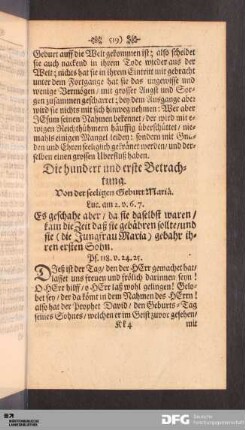 (519)
Geburt auff die Welt gekommen ist; also scheidet
sie auch nackend in ihrem Tode wieder aus der
Welt; nichts hat sie in ihrem Eintritt mit gebracht
unter dem Fortgange hat sie das ungewisse und
wenige Vermögen/ mit grosser Angst und Sor-
gen zusammen gescharret; bey dem Ausgange aber
wird sie nichts mit sich hinweg nehmen: Wer aber
JEsum seinen Nahmen bekennet/ der wird mit e-
wigen Reichthümern häuffig überschüttet/ nie-
mahls einigen Mangel leiden: sondern mit Gna-
den und Ehren seeliglich gekrönet werden/ und der-
selben einen grossen Uberfluß haben.
Die hundert und erste Betrach-
tung.
Von der seeligen Geburt Mariä.
Luc. am 2. v. 6. 7.
Es geschahe aber/ da sie daselbst waren/
kam die Zeit daß sie gebähren solte/und
sie (die Jungfrau Maria) gebahr ih-
ren ersten Sohn.
Ps. 118. v. 24. 25.
DIeß ist der Tag/ den der HErr gemachet hat/
lasset uns freuen und frölich darinnen seyn!
O HErr hilff/ o HErr laß wohl gelingen! Gelo-
bet sey/ der da kömt in dem Nahmen des HErrn!
also hat der Prophet David/ den Geburts-Tag
seines Sohnes/ welchen er im Geist zuvor gesehen/
Kk 4
mit
DFG